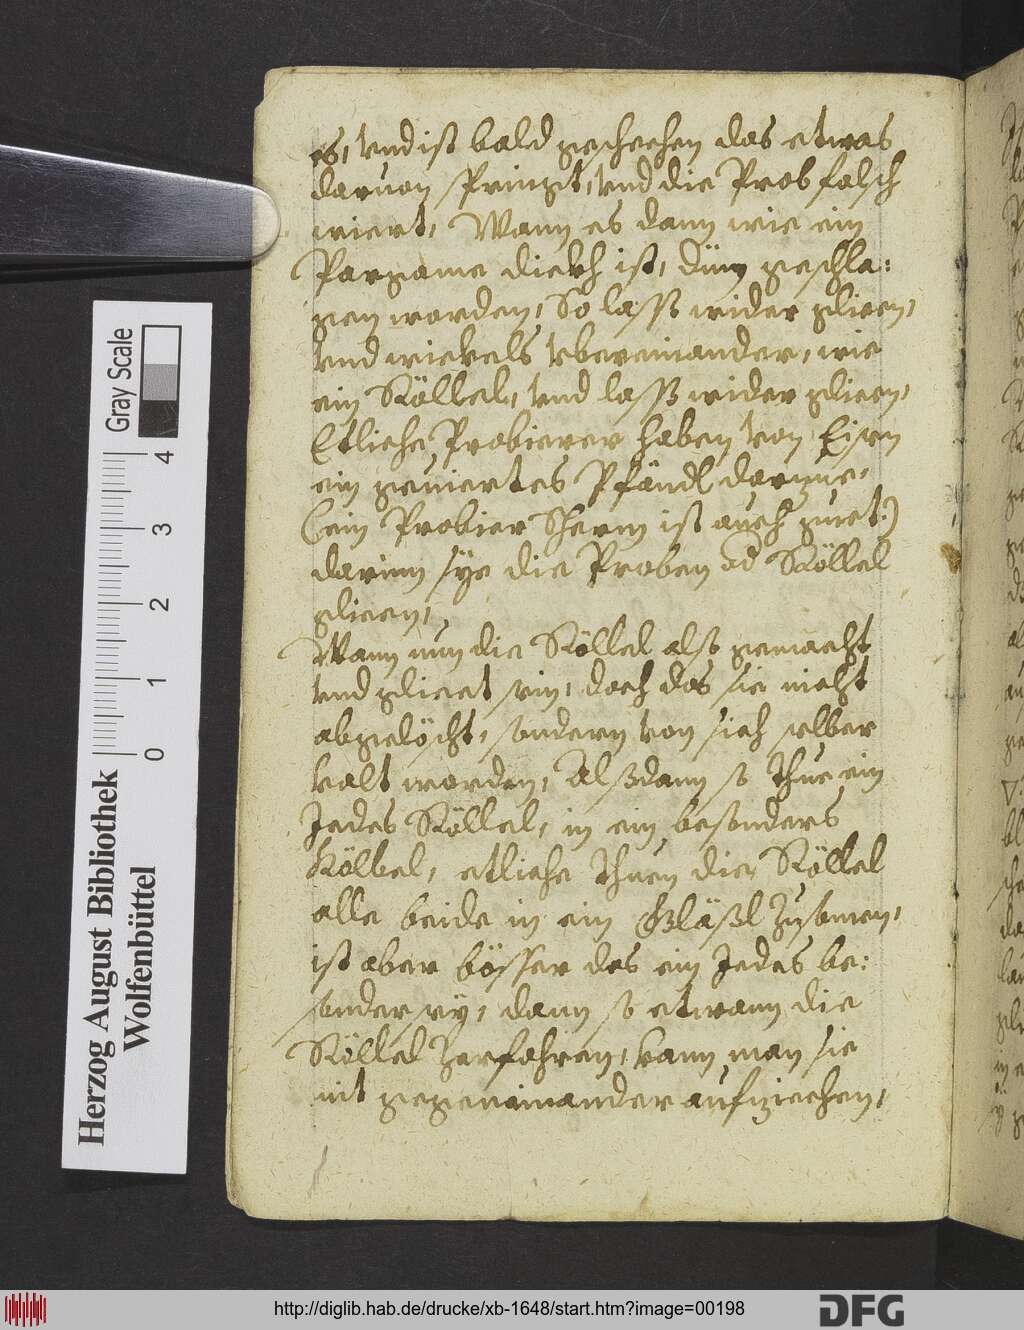 es, vnd ist bald geschechen das etwas
daruon springt, vnd die Prob falsch
wiert, Wann es dann wie ein
Pargame dickh ist, dünn geschla:
gen worden, So lass wider glieen,
vnd wickels vbereinander, wie
ein Röllel, vnd lass wider glieen,
Etliche Probierer haben von Eisen
ein geuiertes Pfändl darzue,
(ein Probier Scherm ist auch guet)
darinn sye die Proben od Röllel
glieen,
Wann nun die Röllel alss gemacht
vnd glieet sein, doch das sie nicht
abgelöscht, sondern von sich selber
kalt worden, Alssdann so thue ein
Jedes Röllel, in ein besonders
Kölbel, etliche thuen die Röllel
alle beide in ein Gläßl Zusamen,
ist aber bösser das ein Jedes be:
sonder sey, dann so etwann die
Röllel Zerfahren, kann man sie
nit gegeneinander aufziechen,
Herzog August Bibliothek
Wolfenbüttel
Gray Scale
0 1 2 3 4
http://diglib.hab.de/drucke/xb-1648/start.htm?image=00198
DFG